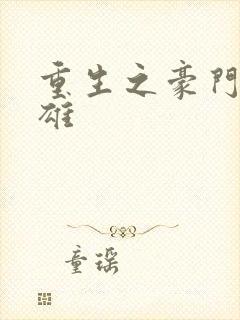 重生之豪門
雄
童琛